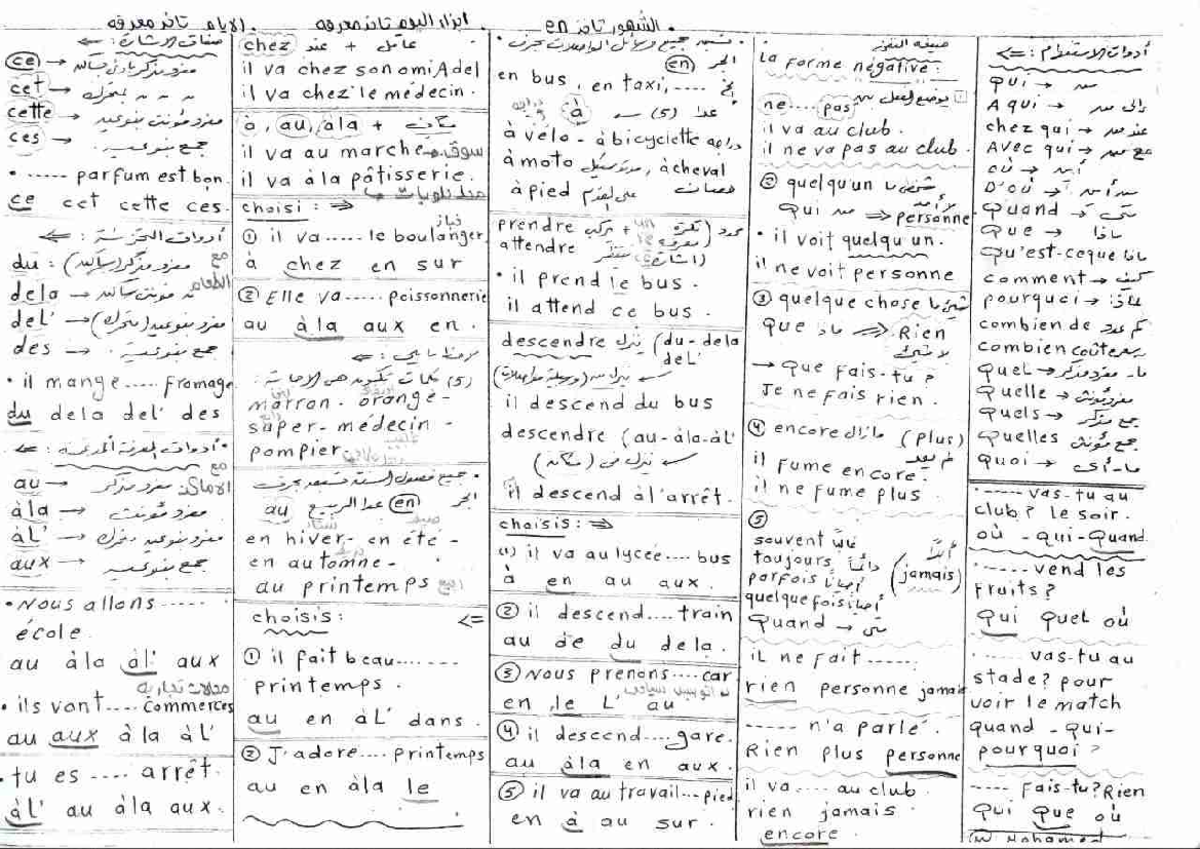 الشهور تاخذ en . ابزار اليوم تاخذ معرفه . الايام تاخذ معرفه
أدوات الاستفهام : <=
Qui → من
A qui → إلى من
chez qui → عند من
Avec qui → مع من
où → أين
D'où → من أين
Quand → متى
Que → ماذا
Qu'est-ceque ماذا
comment → كيف
pourquoi → لماذا
combien de كم عدد
combien coûte
Quel → ما - مفرد مذكر
Quelle → مفرد مؤنث
Quels → جمع مذكر
Quelles جمع مؤنث
Quoi → ما - أى
. ----- vas-tu au
club? le soir.
où - qui - Quand
. ----- vend les
Fruits?
Qui quel où
. ----- vas-tu au
stade? pour
voir le match
quand - qui-
pourquoi?
----- Fais-tu? Rien
Qui Que où
M Mohamed
صيغه النفى
La forme négative:
ne .... pas يوضع الفعل بين
il va au club.
il ne va pas au club.
② quelqu'un شخص ما
Qui من => personne لا أحد
. il voit quelqu'un.
il ne voit personne
③ quelque chose شئ ما
Que ماذا => Rien
لا شئ
→ Que fais-tu?
Je ne fais rien.
④ encore مازال (plus)
لم يعد
il fume encore.
il ne fume plus.
⑤
souvent غالباً
toujours دائماً أبداً
parfois أحياناً (jamais)
quelquefois أحياناً
Quand → متى
il ne fait ------.
rien personne jamais
----- n'a parlé.
Rien plus personne
il va .... au club.
rien jamais
encore.
. تسبق جميع وسائل المواصلات بحرف
الجر en
en bus, en taxi, ..... إلخ
عدا (5) à
à vélo - à bicyclette دراجه
à moto موتوسيكل, à cheval
à pied على القدم حصان
prendre يركب + نكرة un
attendre ينتظر معرفه le
. il prend le bus.
il attend ce bus.
descendre ينزل (du-dela
del'
ينزل من (وسيلة مواصلات)
il descend du bus
descendre (au-àla-àl'
ينزل فى (مكان)
il descend à l'arrêt.
choisis: =>
(1) il va au lycée .... bus
à en au aux.
② il descend .... train
au de du dela.
③ Nous prenons .... car
en le L' au
④ il descend .... gare.
au àla en aux.
⑤ il va au travail ... pied
en à au sur.
chez عند + عاقل
il va chez son ami Adel
il va chez le médecin.
à, au, àla + مكان
il va au marché → سوق
il va à la pâtisserie.
choisi: =>
① il va ..... le boulanger خباز
à chez en sur
② Elle va ..... poissonnerie
au àla aux en.
(5) كلمات تكون هى الاجابة :
marron - orange -
super - médecin -
pompier
. جميع فصول السنة تسبق بحرف
الجر en عدا الربيع au
en hiver شتاء - en été صيف -
en automne خريف -
au printemps ربيع
choisis: <=
① il fait beau .......
printemps.
au en àL' dans.
② J'adore .... printemps
au en àla le
صفات الاشارة : <=
ce → مفرد مذكر
cet →
cette → مفرد مؤنث
ces → جمع بنوعيه
. ..... parfum est bon.
ce cet cette ces.
أدوات التجزئة : <=
du : مفرد مذكر مع
dela → الطعام
del' → مفرد بنوعيه
des → جمع بنوعيه
. il mange ..... fromage
du dela del' des
. أدوات المعرفة المدغمة : <=
au → مفرد مذكر مع
àla → مفرد مؤنث الاماكن
àL' → مفرد بنوعيه
aux → جمع بنوعيه
. Nous allons .....
école.
au àla àl' aux
محلات تجارية
. ils vont .... commerces
au aux àla àL'
. tu es .... arrêt.
àL' au àla aux.